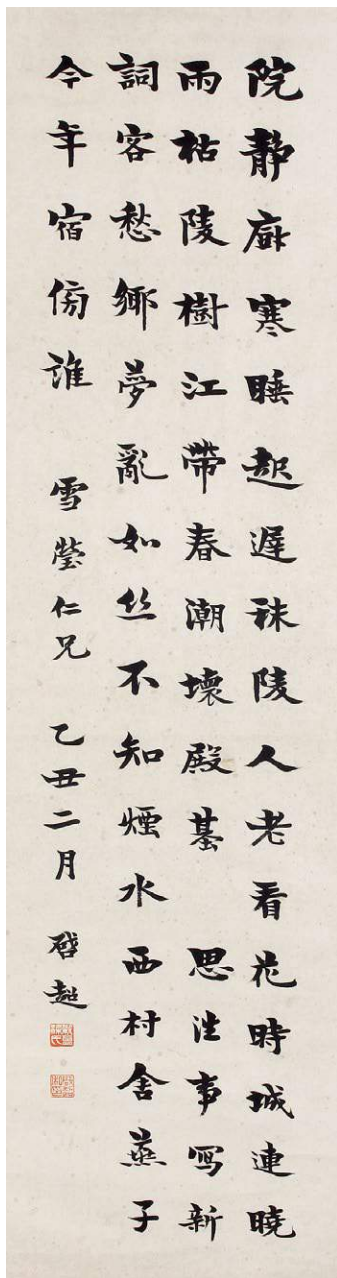 院靜厨寒睡起遲秣陵人老看花時城連曉
雨枯陵樹江帶春潮壞殿基 思往事写新
詞客愁鄉夢亂如丝不知煙水西村舍燕子
今年宿傍誰 雪瑩仁兄 乙丑二月 啓超